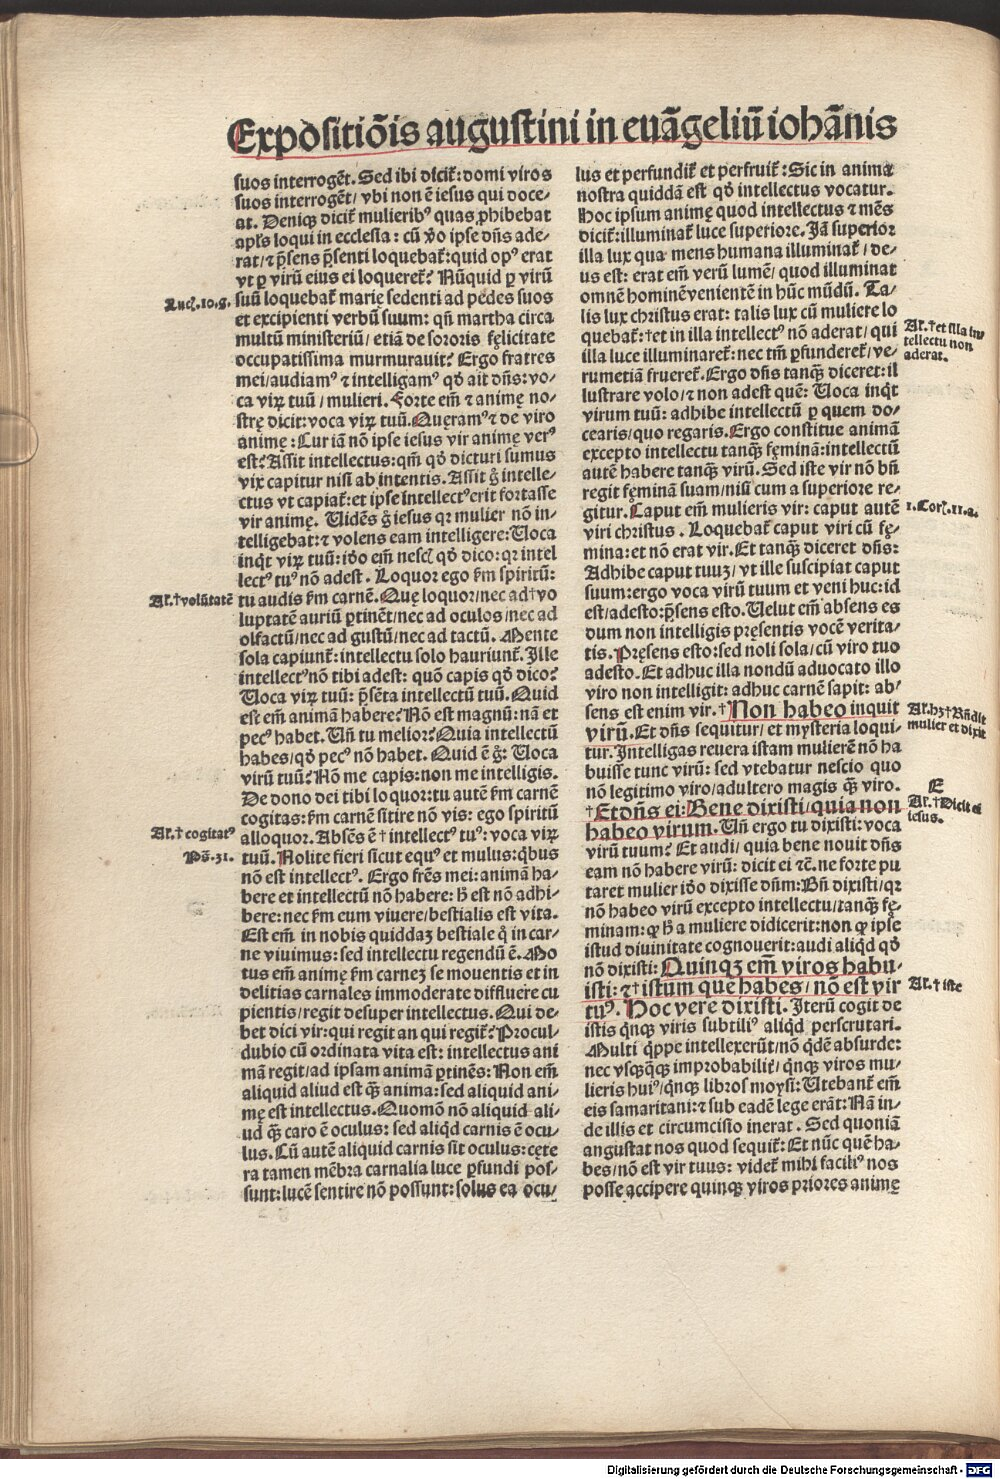 Expositiōis augustini in euāgeliū iohānis
suos interrogēt. Sed ibi dicit̄: domi viros
suos interrogēt/ vbi non ē iesus qui doce⸗
at. Deniqꝫ dicit̄ mulieribꝰ quas ꝓhibebat
apl̄s loqui in ecclesia: cū ṽo ipse dn̄s ade⸗
rat/ ⁊ p̄sens p̄senti loquebat̄: quid opꝰ erat
vt ꝑ virū eius ei loqueret̄? Nūquid ꝑ virū
Luc̄. 10. g.
suū loquebat̄ marię sedenti ad pedes suos
et excipienti verbū suum: qn̄ martha circa
multū ministeriū/ etiā de sororis fęlicitate
occupatissima murmurauit? Ergo fratres
mei/ audiamꝰ ⁊ intelligamꝰ qd̄ ait dn̄s: vo⸗
ca viꝝ tuū/ mulieri. Forte em̄ ⁊ animę no⸗
strę dicit: voca viꝝ tuū. Quęramꝰ ⁊ de viro
animę: Cur iā nō ipse iesus vir animę verꝰ
est? Assit intellectus: qm̄ qd̄ dicturi sumus
vix capitur nisi ab intentis. Assit g̊ intelle⸗
ctus vt capiat̄: et ipse intellectꝰ erit fortasse
vir animę. Uidēs g̊ iesus qꝛ mulier nō in⸗
telligebat: ⁊ volens eam intelligere: Uoca
inqͥt viꝝ tuū: iđo em̄ nescī qd̄ dico: qꝛ intel
lectꝰ tuꝰ nō adest. Loquor ego ẜm spiritū:
Al. † volūtatē
tu audis ẜm carnē. Quę loquor/ nec ad † vo
luptatē auriū ꝑtinēt/ nec ad oculos/ nec ad
olfactū/ nec ad gustū/ nec ad tactū. Mente
sola capiunt̄: intellectu solo hauriunt̄. Ille
intellectꝰ nō tibi adest: quō capis qd̄ dico?
Uoca viꝝ tuū: p̄sēta intellectū tuū. Quid
est em̄ animā habere? Nō est magnū: nā et
pecꝰ habet. Un̄ tu melior? Quia intellectū
habes/ qd̄ pecꝰ nō habet. Quid ē g̊: Uoca
virū tuū? Nō me capis: non me intelligis.
De dono dei tibi loquor: tu autē ẜm carnē
cogitas: ẜm carnē sitire nō vis: ego spiritū
Al. † cogitatꝰ
alloquor. Absēs ē † intellectꝰ tuꝰ: voca viꝝ
Pš. 31.
tuū. Nolite fieri sicut equꝰ et mulus: qͥbus
nō est intellectꝰ. Ergo fr̄es mei: animā ha⸗
bere et intellectū nō habere: h̄ est nō adhi⸗
bere: nec ẜm eum viuere/ bestialis est vita.
Est em̄ in nobis quiddaꝫ bestiale q̊ in car⸗
ne viuimus: sed intellectu regendū ē. Mo
tus em̄ animę ẜm carneꝫ se mouentis et in
delitias carnales immoderate diffluere cu
pientis/ regit desuper intellectus. Qui de⸗
bet dici vir: qui regit an qui regit̄? Procul
dubio cū ordinata vita est: intellectus ani
mā regit/ ad ipsam animā ꝑtinēs: Non em̄
aliquid aliud est qꝫ̄ anima: sed aliquid ani⸗
mę est intellectus. Quomō nō aliquid ali⸗
ud qꝫ̄ caro ē oculus: sed aliqͥd carnis ē ocu⸗
lus. Cū autē aliquid carnis sit oculus: cęte
ra tamen mēbra carnalia luce ꝑfundi pos⸗
sunt: lucē sentire nō possunt: solus ea ocu⸗
lus et perfundit̄ et perfruit̄: Sic in anima
nostra quiddā est qd̄ intellectus vocatur.
Hoc ipsum animę quod intellectus ⁊ mēs
dicit̄: illuminat̄ luce superiore. Iā superior
illa lux qua mens humana illuminat̄/ de⸗
us est: erat em̄ verū lumē/ quod illuminat
omnē hominē venientē in hūc mūdū. Ta⸗
lis lux christus erat: talis lux cū muliere lo
quebat̄: † et in illa intellectꝰ nō aderat/ qui
Al. † et illa in⸗
tellectu non
aderat.
illa luce illuminaret̄: nec tm̄ ꝑfunderet̄/ ve⸗
rumetiā frueret̄. Ergo dn̄s tanqꝫ̄ diceret: il
lustrare volo/ ⁊ non adest quē: Uoca inqͥt
virum tuū: adhibe intellectū ꝑ quem do⸗
cearis/ quo regaris. Ergo constitue animā
excepto intellectu tanqꝫ̄ fęminā: intellectū
autē habere tanqꝫ̄ virū. Sed iste vir nō bn̄
regit fęminā suam/ nisi cum a superiore re⸗
gitur. Caput em̄ mulieris vir: caput autē
1. Cor̄. 11. a.
viri christus. Loquebat̄ caput viri cū fę⸗
mina: et nō erat vir. Et tanqꝫ̄ diceret dn̄s:
Adhibe caput tuuꝫ/ vt ille suscipiat caput
suum: ergo voca virū tuum et veni huc: id
est/ adesto: p̄sens esto. Uelut em̄ absens es
dum non intelligis pręsentis vocē verita⸗
tis. Pręsens esto: sed noli sola/ cū viro tuo
adesto. Et adhuc illa nondū aduocato illo
viro non intelligit: adhuc carnē sapit: ab⸗
sens est enim vir. † Non habeo inquit
Al. hꝫ † Rn̄dit
mulier et dixit
virū. Et dn̄s sequitur/ et mysteria loqui⸗
tur. Intelligas reuera istam mulierē nō ha
buisse tunc virū: sed vtebatur nescio quo
nō legitimo viro/ adultero magis qꝫ̄ viro.
E
† Et dn̄s ei: Bene dixisti/ quia non
Al. † Dicit ei
iesus.
habeo virum. Un̄ ergo tu dixisti: voca
virū tuum? Et audi/ quia bene nouit dn̄s
eam nō habere virū: dicit ei ⁊c̄. ne forte pu
taret mulier iđo dixisse dn̄m: Bn̄ dixisti/ qꝛ
nō habeo virū excepto intellectu/ tanqꝫ̄ fę⸗
minam: ꝙ h̄ a muliere didicerit: non ꝙ ipse
istud diuinitate cognouerit: audi aliqͥd qd̄
nō dixisti: Quinqꝫ em̄ viros habu⸗
isti: ⁊ † istum que habes/ nō est vir
Al. † iste
tuꝰ. Hoc vere dixisti. Iterū cogit de
istis qͥnqꝫ viris subtiliꝰ aliqͥd perscrutari.
Multi qͥppe intellexerūt/ nō qͥdē absurde:
nec vsqꝫqͣqꝫ improbabilit̄/ qͥnqꝫ viros mu⸗
lieris huiꝰ/ qͥnqꝫ libros moysi: Utebant̄ em̄
eis samaritani: ⁊ sub eadē lege erāt: Nā in⸗
de illis et circumcisio inerat. Sed quoniā
angustat nos quod sequit̄: Et nūc quē ha⸗
bes/ nō est vir tuus: videt̄ mihi faciliꝰ nos
posse accipere quinqꝫ viros priores animę
Digitalisierung gefördert durch die Deutsche Forschungsgemeinschaft - DFG